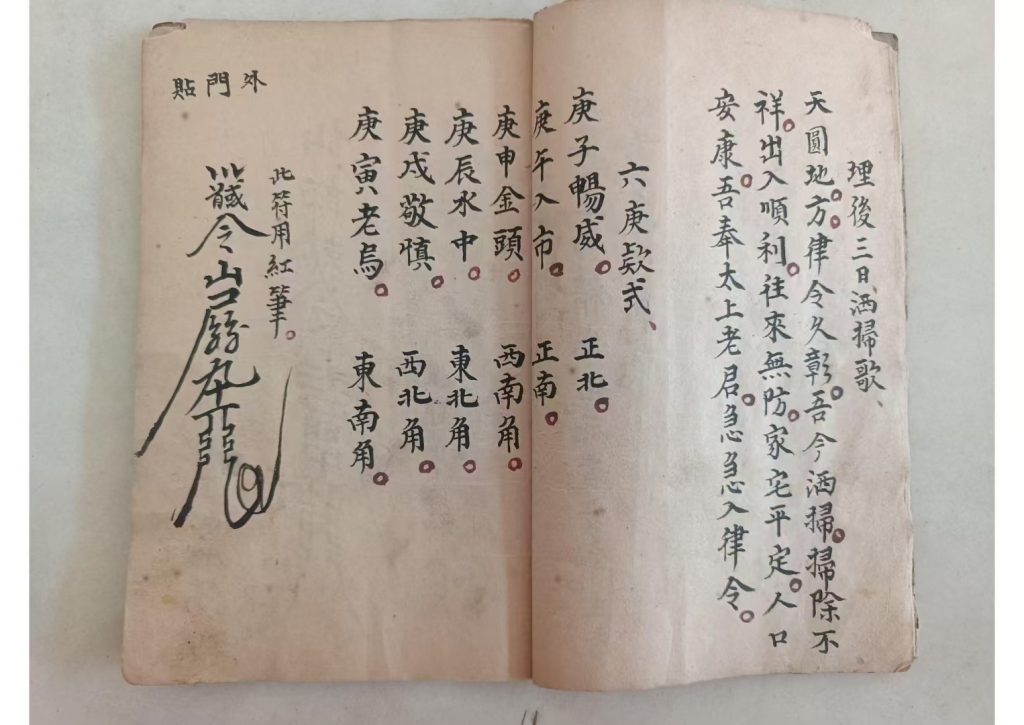 埋後三日洒掃歌、
天圓地方。律令久彰。吾今洒掃。掃除不
祥。出入順利。往來無防。家宅平定。人口
安康。吾奉太上老君。急急入律令。
六庚欵式、
庚子暢威。 正北。
庚午入市。 正南。
庚申金頭。 西南角。
庚辰水中。 東北角。
庚戍敬慎。 西北角。
庚寅老烏。 東南角。
此符用紅筆。
外門貼